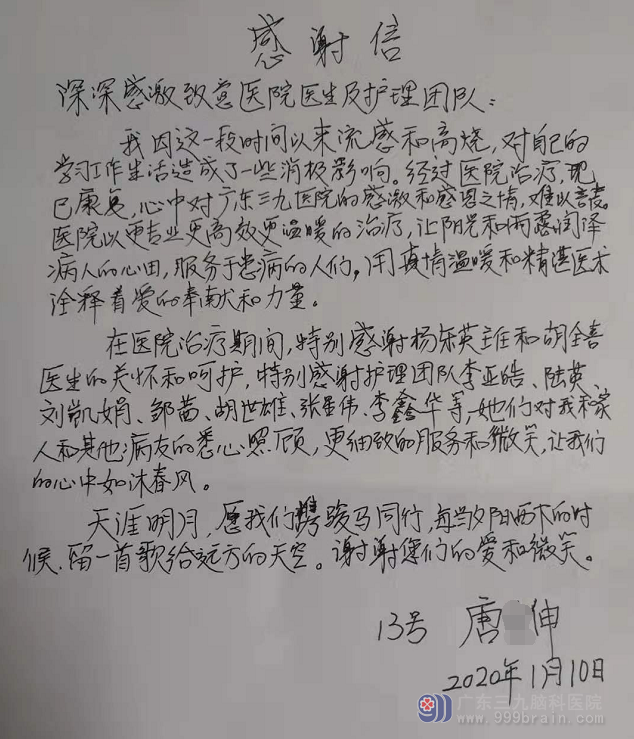 感谢信
深深感激致意医院医生及护理团队：
我因这一段时间以来流感和高烧，对自己的
学习工作生活造成了一些消极影响。经过医院治疗，现
已康复，心中对广东三九医院的感激和感恩之情，难以言表。
医院以更专业更高效更温暖的治疗，让阳光和雨露润泽
病人的心田，服务于患病的人们，用真情温暖和精湛医术
诠释着爱的奉献和力量。
在医院治疗期间，特别感谢杨东英主任和胡全喜
医生的关怀和呵护，特别感谢护理团队李亚皓、陆英、
刘凯娟、邹茜、胡世雄、张星伟、李鑫华等，她们对我和家
人和其他病友的悉心照顾，更细致的服务和微笑，让我们
的心中如沐春风。
天涯明月，愿我们携骏马同行，每当夕阳西下的时
候，留一首歌给远方的天空。谢谢您们的爱和微笑。
13号 唐 伸
2020年1月10日
广东三九脑科医院
www.999brain.com